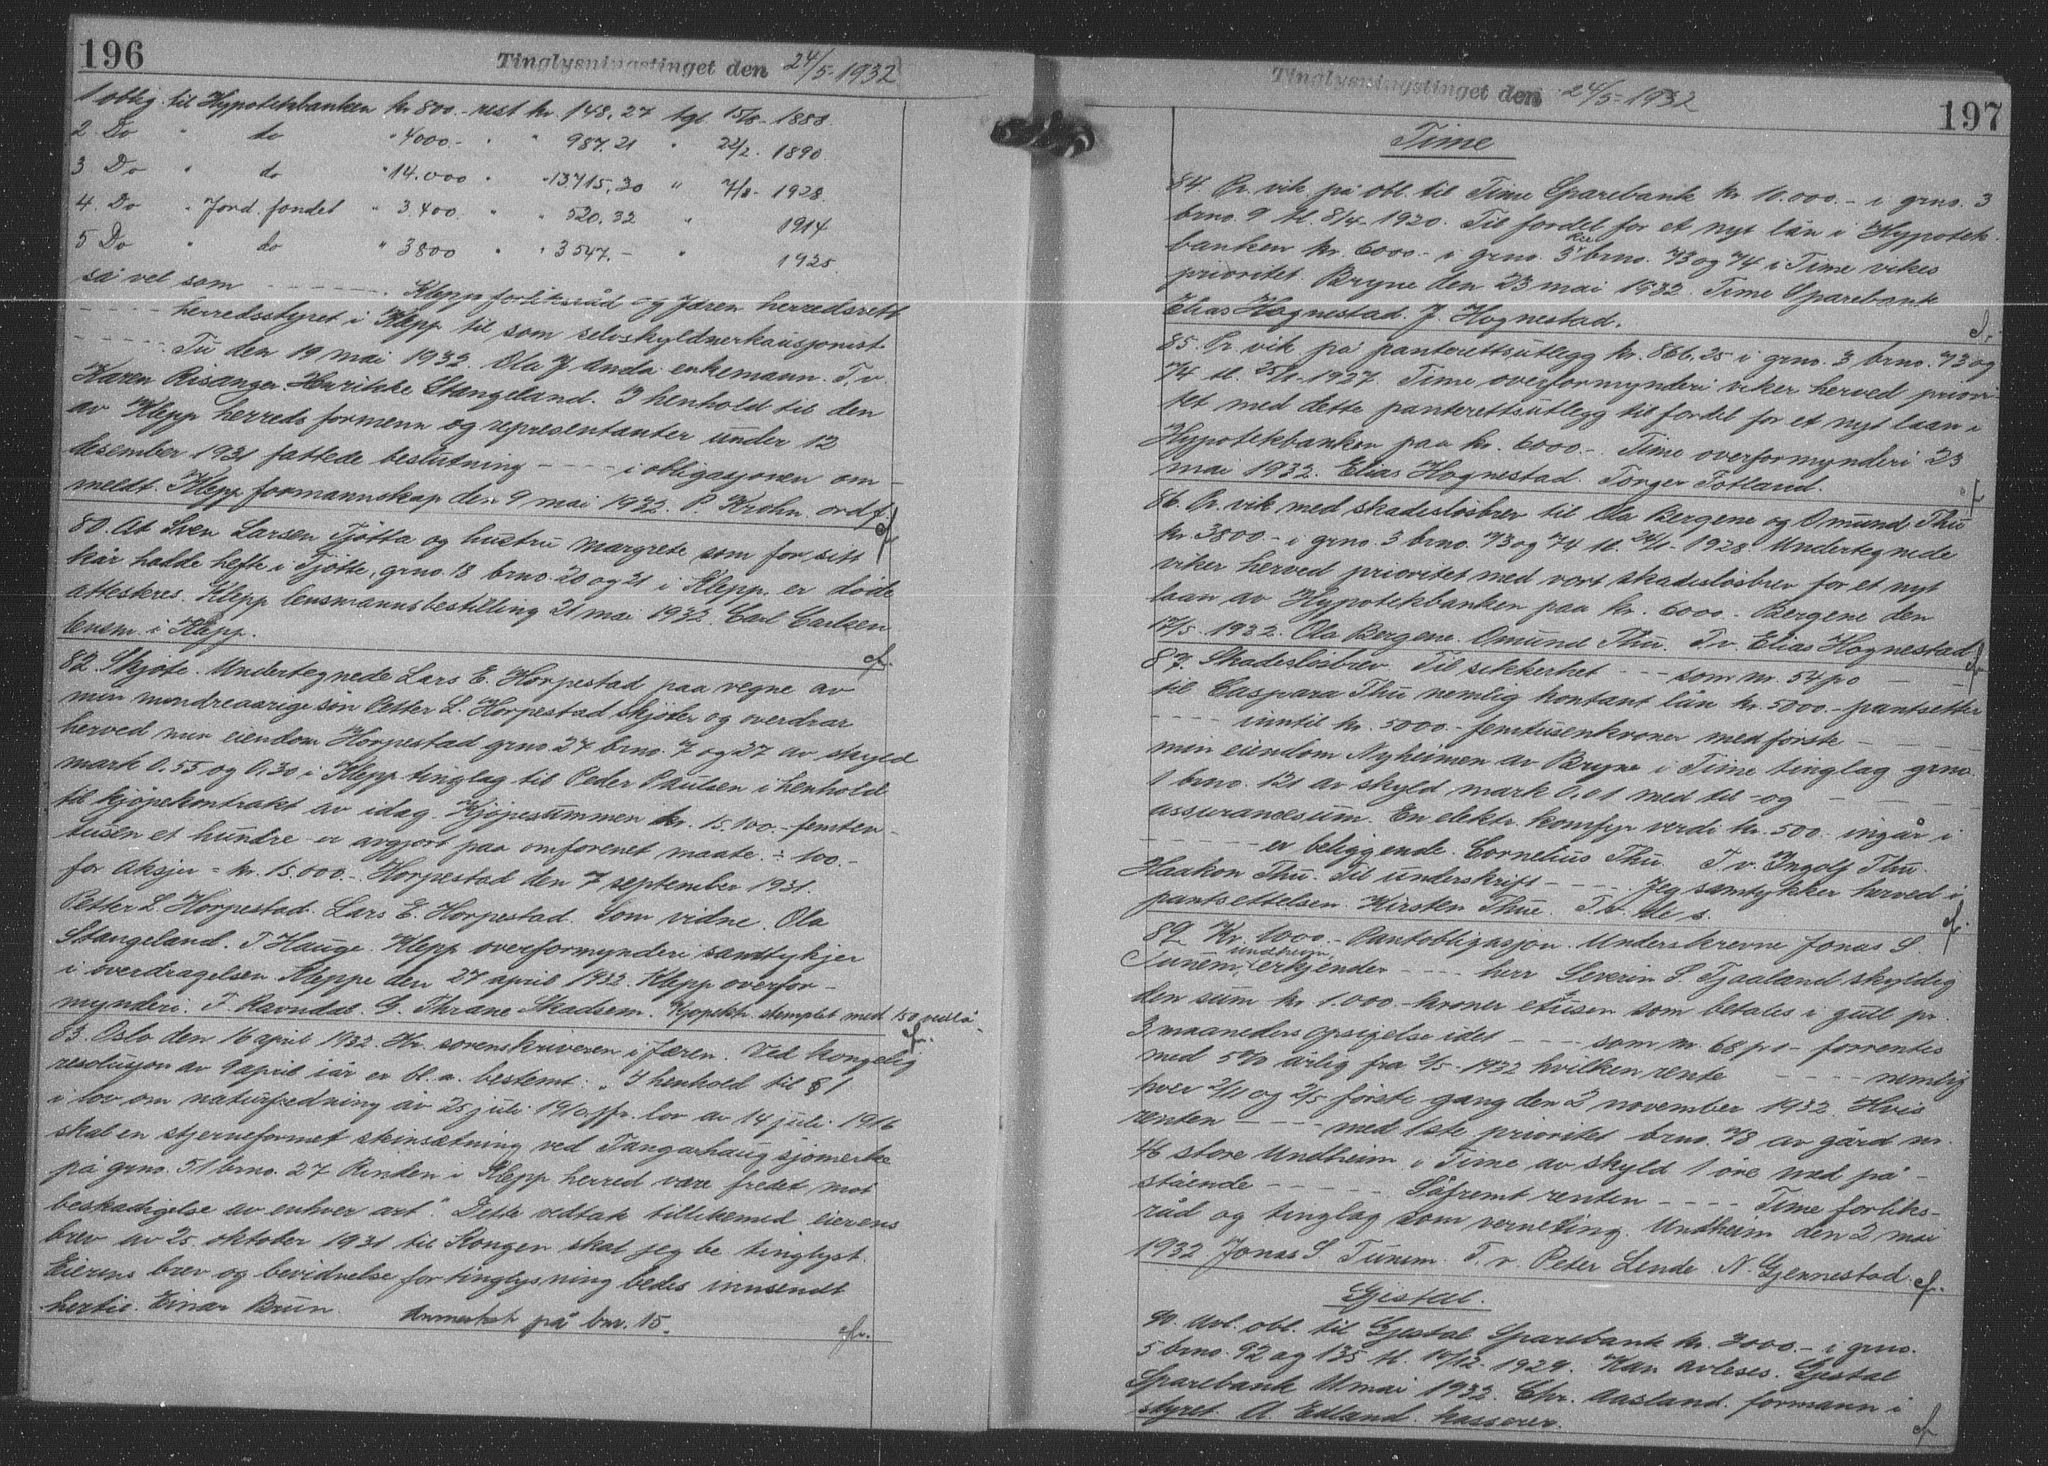 196
Tinglysningstinget den 24/5-1932
1 oblig. til Hypotekbanken kr 800.- rest kr. 148,27 tgl 15/8-1888
2. Do " do " 4000.- " " 987.21 " 22/2. 1890
3 Do " do " 14.000 " " 13715,20 " 7/8-1928
4. Do " Jord.fondet " 3.400. " " 520.32 " 1914
5 Do " do " 3800 " " 3547.- " 1925
så vel som - - - - - - - Klepp forliksråd og Jæren herredsrett
- - - - herredsstyret i Klepp til som selvskyldnerkausjonist
- - - - - Tu den 19 mai 1932. Ola J Anda enkemann. T.v.
Karen Risanger Henrikke Stangeland. I henhold til den
av Klepp herreds formenn og representanter under 12
desember 1931 fattede beslutning - - - - i obligasjonen om-
meldt. Klepp formannskap den 9 mai 1932. P. Krohn ordf.
80. At Sven Larsen Tjøtta og hustru Margrete som for sitt
kår hadde hefte i Tjøtte, grno. 18 brno 20 og 21 i Klepp er døde
attesteres. Klepp lensmannsbestilling 21 mai 1932. Carl Carlsen
lensm. i Klepp.
82. Skjøte. Undertegnede Lars E. Horpestad paa vegne av
min mindreaarige søn Petter L. Horpestad skjøter og overdrar
herved min eiendom Horpestad grno. 27 brno. 7 og 27 av skyld
mark 0,55 og 0,30 i Klepp tinglag til Peder Paulsen i henhold
til kjøpekontrakt av idag. Kjøpesummen kr. 15.100.- femten-
tusen et hundre - er avgjort paa omforenet maate. ÷ 100.-
for Aksjer = kr. 15.000.- Horpestad den 7 september 1931.
Petter L. Horpestad. Lars E. Horpestad. Som vidne. Ola
Stangeland. T Hauge. Klepp overformynderi samtykjer
i overdragelsen Kleppe den 27 april 1932. Klepp overfor-
mynderi. T. Ravndal G. Thrane Skadsem. Kjøpektr. stemplet med 150
83. Oslo den 16 april 1932. Hr. sorenskriveren i Jæren. Ved kongelig
resolusjon av 9 april iår er bl.a. bestemt: "I henhold til § 1
i lov om naturfredning av 25 juli 1910 jfr. lov av 14 juli 1916
skal en stjerneformet steinsætning ved Tangarhaug sjømerke
på grno. 51 brno. 27 Rinden i Klepp herred være fredet mot
beskadigelse av enhver art". Dette vedtak tillikemed eierens
brev av 25 oktober 1931 til Kongen skal jeg be tinglyst.
Eierens brev og bevidnelse for tinglysning bedes innsendt
hertil. Einar Brun. Anmerket på bnr. 15.
Tinglysningstinget den 24/5-1932
197
Time
84. Pr. vik. på obl. til Time Sparebank kr 10.000.- i grno. 3
brno. 9 tl. 8/4-1920. Til fordel for et nyt lån i Hypotek-
banken kr. 6000.- i grno. 3 brno. 73 og 74 i Time vikes
prioritet. Bryne den 23 mai 1932. Time Sparebank
Elias Hognestad. J. Hognestad.
85. Pr. vik. på panterettsutlegg kr. 866,25 i grno. 3 brno. 73 og
74 tl. 25/1-1927. Time overformynderi viker herved priori-
tet med dette panterettsutlegg til fordel for et nyt laan i
Hypotekbanken paa kr. 6000.-. Time overformynderi 23
mai 1932. Elias Hognestad. Torger Totland.
86. Pr. vik med skadesløsbrev til Ola Bergene og Omund Thu
kr. 3800.- i grno. 3 brno. 73 og 74 tl. 24/1-1928 Undertegnede
viker herved prioritet med vort skadesløsbrev for et nyt
laan av Hypotekbanken paa kr. 6000.- Bergene den
17/5-1932. Ola Bergene. Omund Thu. T.v. Elias Hognestad
87. Skadesløsbrev. Til sikkerhet - - - som nr. 54 po - - -
til Caspara Thu nemlig kontant lån kr. 5000.- pantsetter
- - - - inntil kr. 5000.- femtusenkroner med første - - - -
min eiendom Nyheimen av Bryne i Time tinglag grno.
1 brno. 121 av skyld mark 0,01 med til- og - - - - -
assuransesum. En elektr. komfyr verdi kr. 500.- ingår i
- - - - - er beliggende. Cornelius Thu. T.v. Ingolf Thu.
Haakon Thu. Til underskrift - - - - Jeg samtykker herved i
pantsettelsen. Kirsten Thue. T.v. de s.
89. Kr. 1000.- Pantobligasjon. Underskrevne Jonas S
Tunem, Undheim, erkjender - - - - herr Severin S. Tjaaland skyldig
den sum kr 1.000.- kroner ettusen som betales i gull pr.
3 maaneders opsigelse idet - - - - som nr 68 po - forrentes
med 5% årlig fra 2/5-1932 hvilken rente - - - - - nemlig
hver 2/11 og 2/5 første gang den 2 november 1932. Hvis
renten - - - - med 1ste prioritet brno. 78 av gård nr.
46 store Undheim i Time av skyld 1 øre med på-
stående - - - - - - Såfremt renten - - - - Time forliks-
råd og tinglag som verneting. Undheim den 2 mai
1932. Jonas S. Tunem. T.v. Peter Lende. N. Gjennestad.
Gjestal.
90. Avl. obl. til Gjestal Sparebank kr. 3000.- i grno.
5 brno. 92 og 135 tl. 14/12-1929. Kan avleses. Gjestal
Sparebank 11 mai 1932. Chr. Aasland formann i
styret. A Edland kasserer.